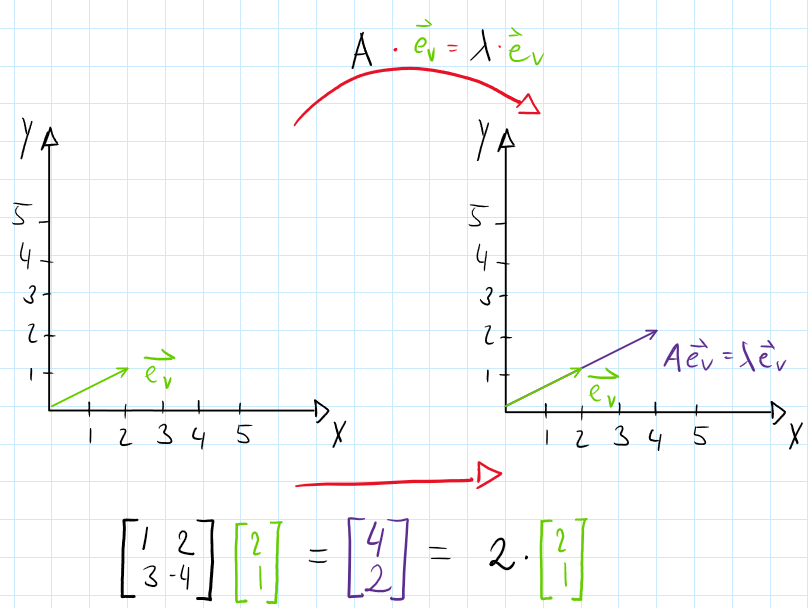 A · e⃗ᵥ = λ · e⃗ᵥ
Y
5
4
3
2
1
e⃗ᵥ
1 2 3 4 5
X
Y
5
4
3
2
1
Ae⃗ᵥ = λe⃗ᵥ
e⃗ᵥ
1 2 3 4 5
X
[1 2] [2] = [4] = 2 · [2]
[3 -4] [1] [2] [1]